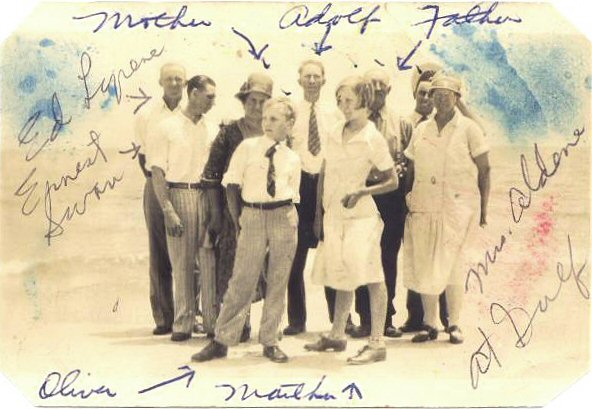 Mother Adolf Father
Ed Lyrene
Ernest
Swan
Mrs. Aldene
At Gulf
Oliver Martha